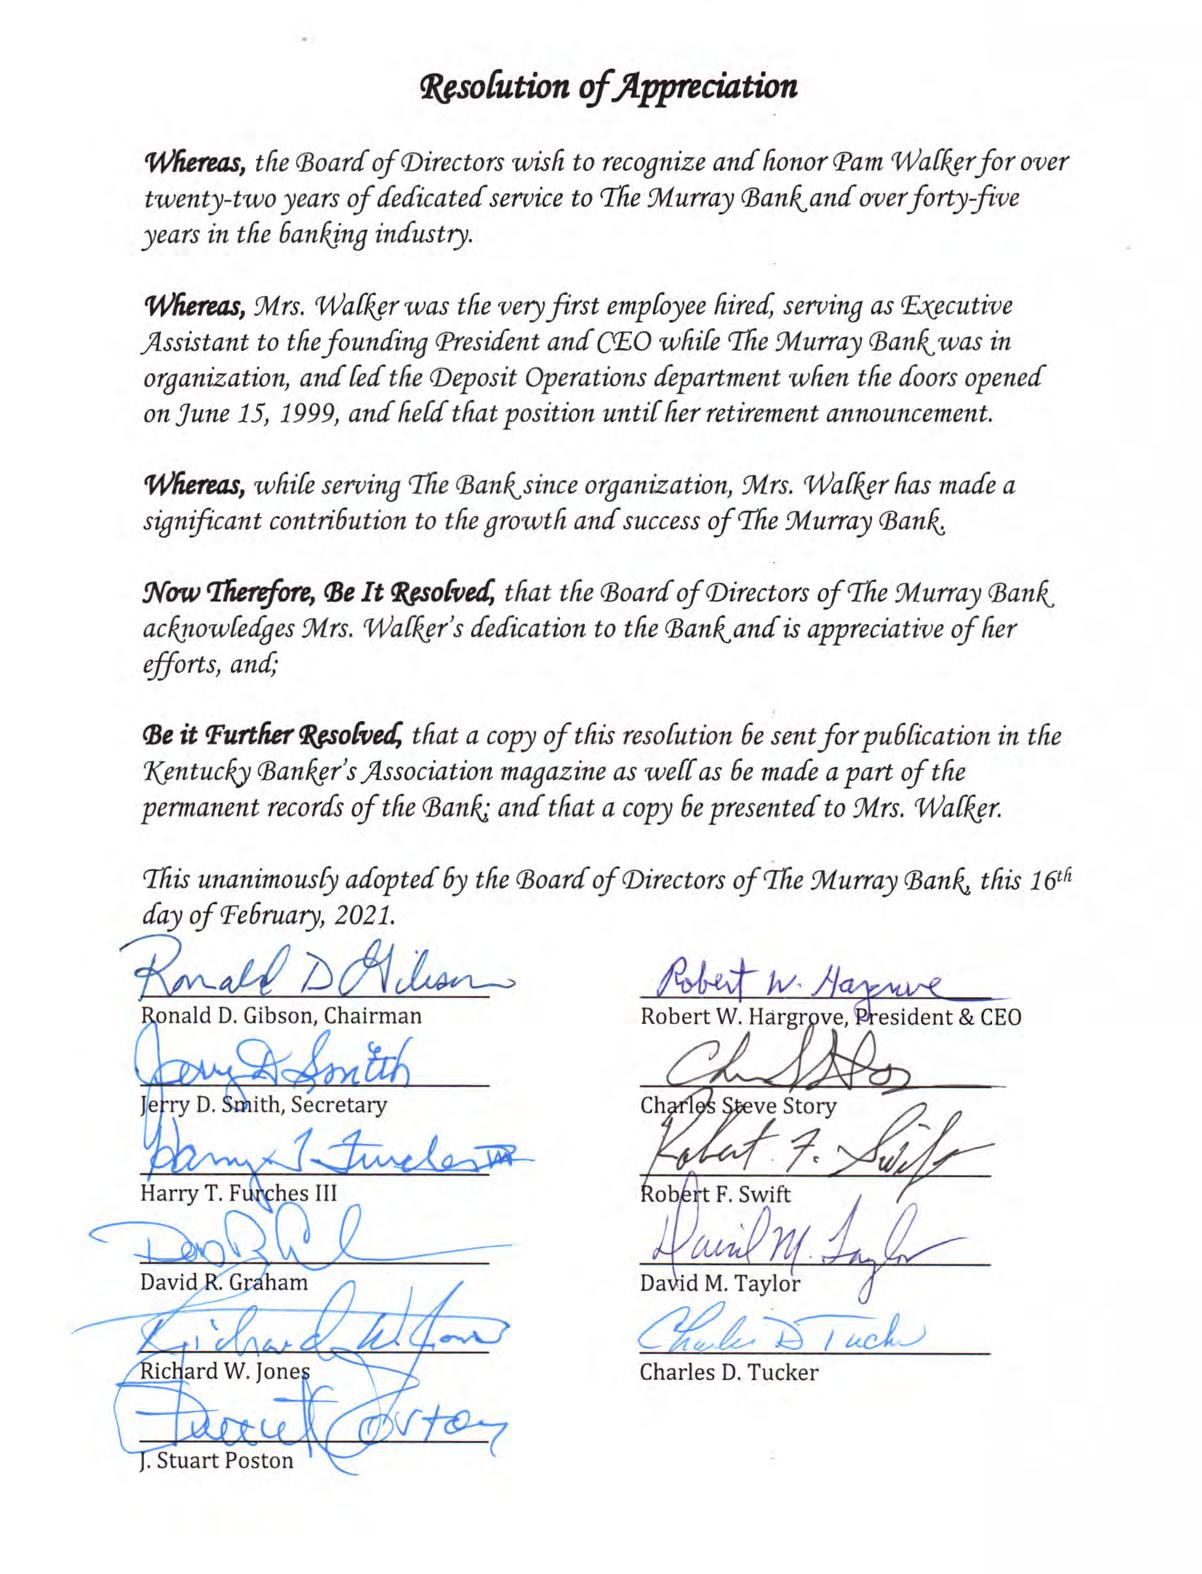 Resolution of Appreciation
Whereas, the Board of Directors wish to recognize and honor Pam Walker for over
twenty-two years of dedicated service to The Murray Bank and over forty-five
years in the banking industry.
Whereas, Mrs. Walker was the very first employee hired, serving as Executive
Assistant to the founding President and CEO while The Murray Bank was in
organization, and led the Deposit Operations department when the doors opened
on June 15, 1999, and held that position until her retirement announcement.
Whereas, while serving The Bank since organization, Mrs. Walker has made a
significant contribution to the growth and success of The Murray Bank.
Now Therefore, Be It Resolved, that the Board of Directors of The Murray Bank
acknowledges Mrs. Walker's dedication to the Bank and is appreciative of her
efforts, and;
Be it Further Resolved, that a copy of this resolution be sent for publication in the
Kentucky Banker's Association magazine as well as be made a part of the
permanent records of the Bank; and that a copy be presented to Mrs. Walker.
This unanimously adopted by the Board of Directors of The Murray Bank, this 16th
day of February, 2021.
Ronald D Gibson
Robert W. Hargrove
Ronald D. Gibson, Chairman
Robert W. Hargrove, President & CEO
Jerry D Smith
Jerry D. Smith, Secretary
Charles Steve Story
Harry T. Furches III
Robert F. Swift
Harry T. Furches III
Robert F. Swift
David M. Taylor
David R. Graham
David M. Taylor
Richard W. Jones
Charles D Tucker
Richard W. Jones
Charles D. Tucker
J. Stuart Poston